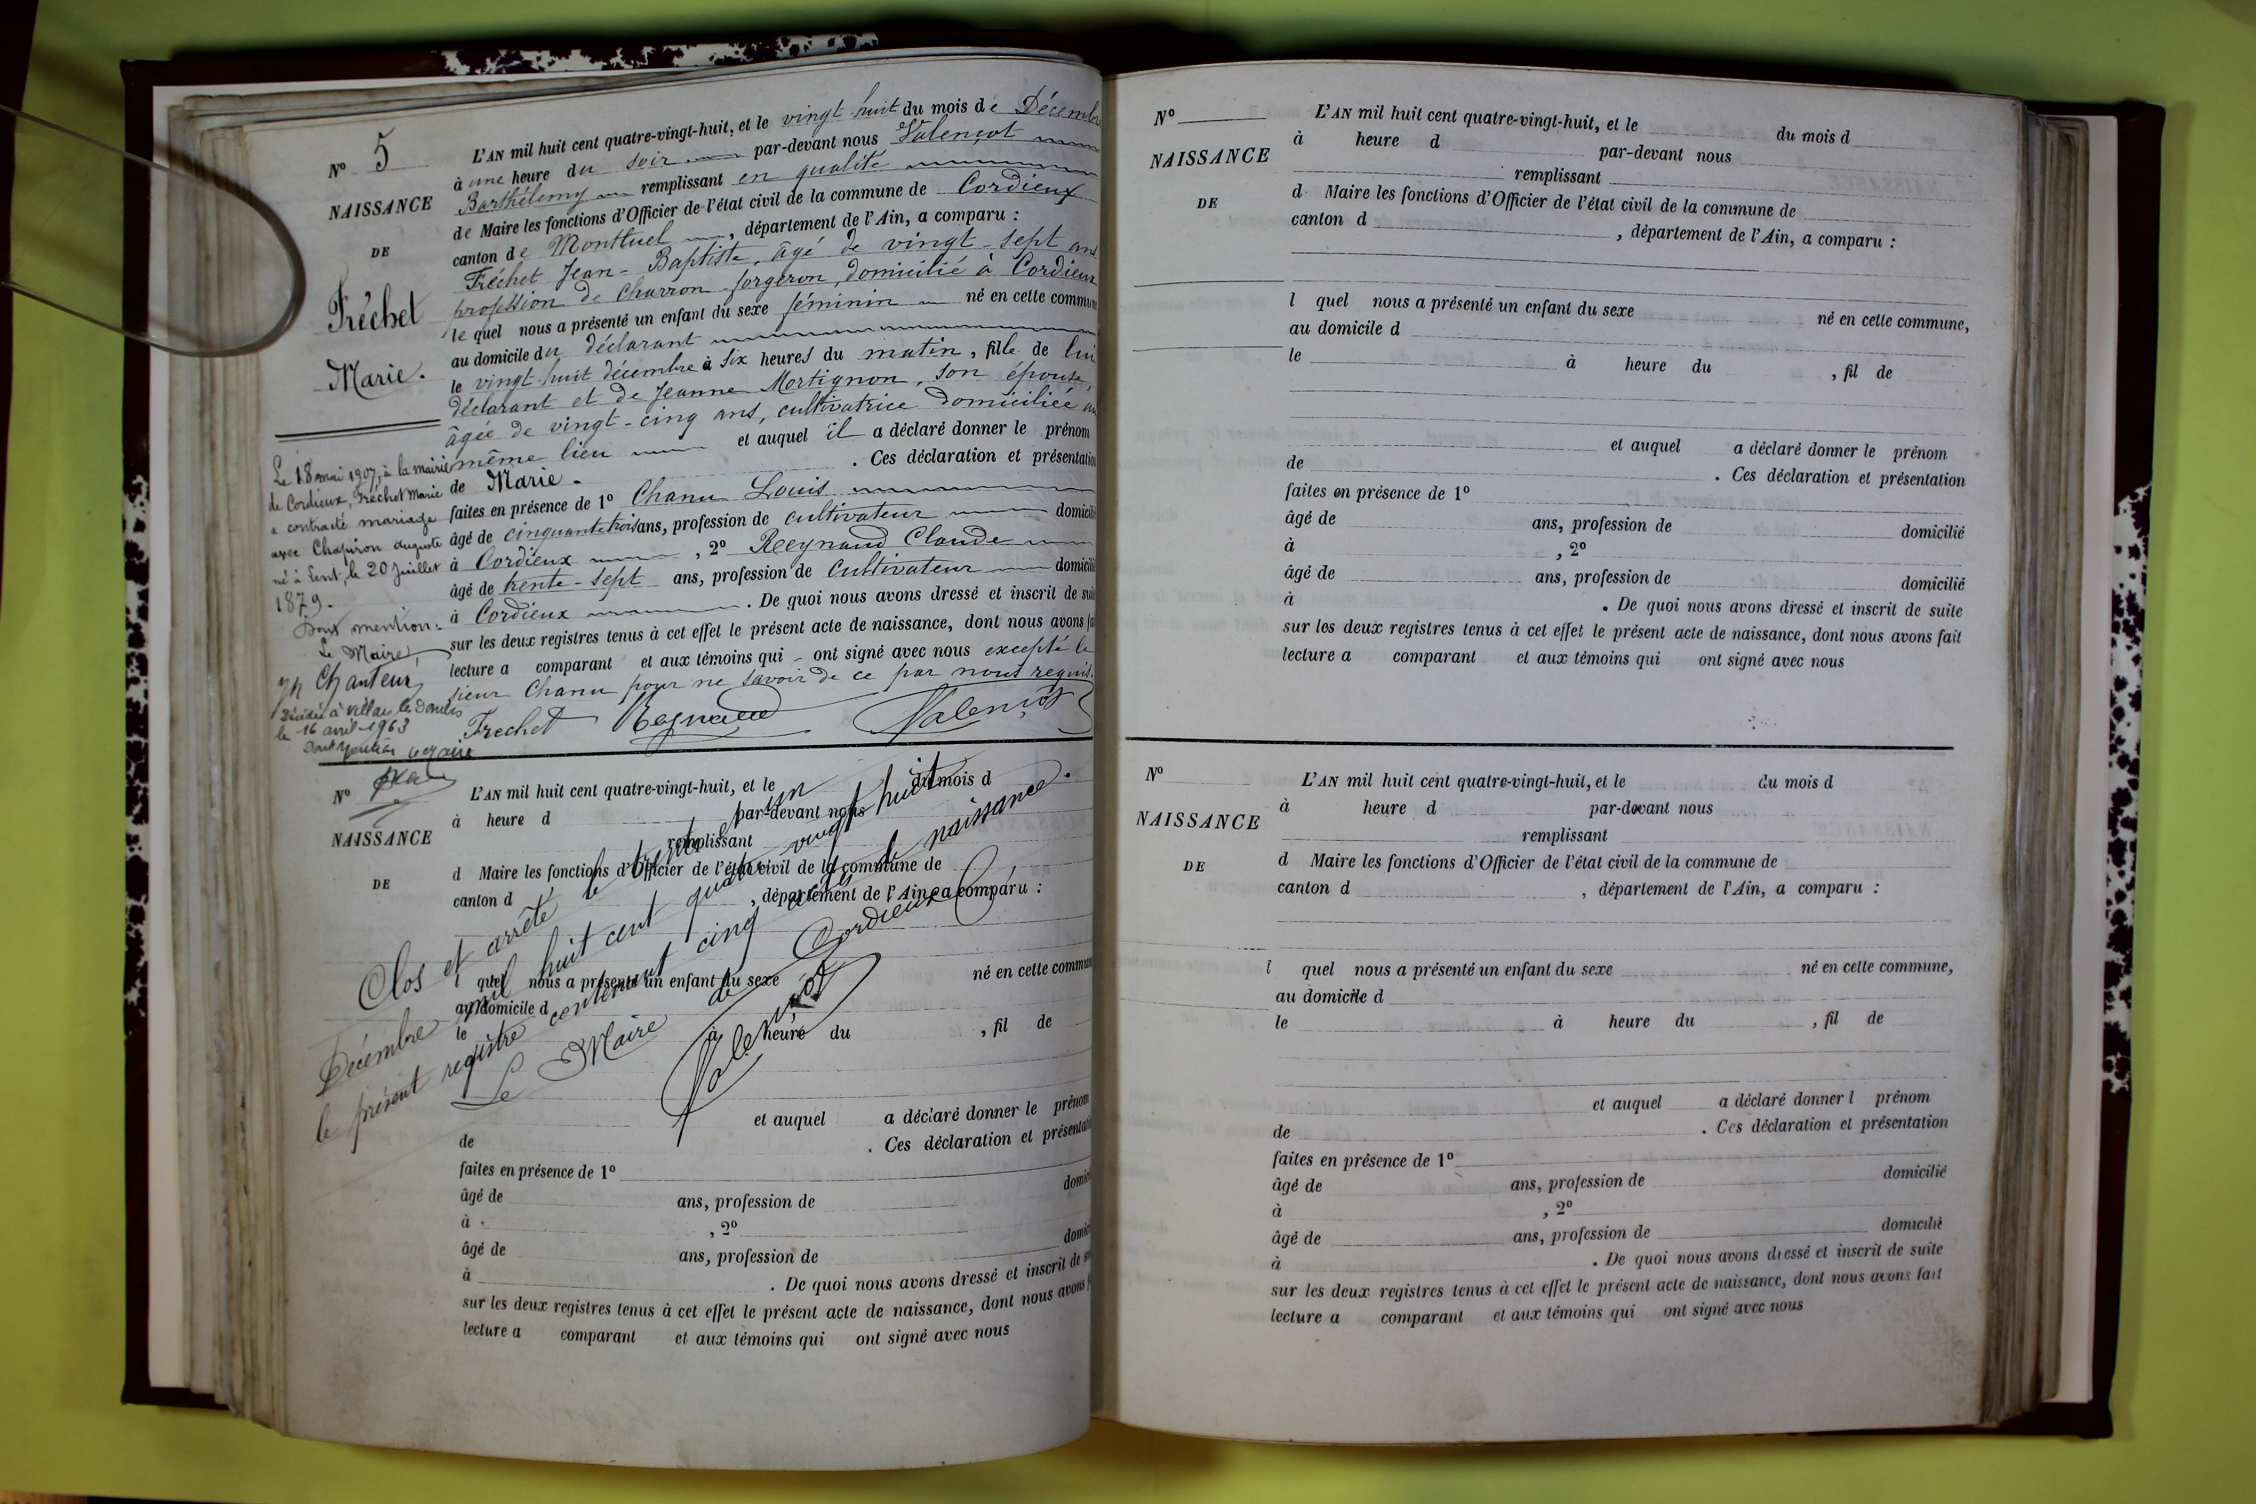 Nº 5
NAISSANCE
DE
Fréchet
Marie.
L'AN mil huit cent quatre-vingt-huit, et le vingt-huit du mois de Décembre
à une heure du soir par-devant nous Valençot
Barthélemy remplissant en qualité
de Maire les fonctions d'Officier de l'état civil de la commune de Cordieux
canton de Montluel, département de l'Ain, a comparu :
Fréchet Jean-Baptiste, âgé de vingt-sept ans
profession de charron-forgeron, domicilié à Cordieux
le quel nous a présenté un enfant du sexe féminin né en cette commune
au domicile du déclarant
le vingt-huit décembre à six heures du matin, fille de lui
déclarant et de Jeanne Mortignon, son épouse,
âgée de vingt-cinq ans, cultivatrice domiciliée au
même lieu et auquel il a déclaré donner le prénom
de Marie. . Ces déclaration et présentation
faites en présence de 1º Chanu Louis
âgé de cinquante trois ans, profession de cultivateur domicilié
à Cordieux, 2º Reynaud Claude
âgé de trente-sept ans, profession de cultivateur domicilié
à Cordieux. De quoi nous avons dressé et inscrit de suite
sur les deux registres tenus à cet effet le présent acte de naissance, dont nous avons fait
lecture a comparant et aux témoins qui ont signé avec nous excepté le
sieur Chanu pour ne savoir de ce par nous requis.
Frechet Reynaud Valençot
Le 18 mai 1907, à la mairie
de Cordieux, Fréchet Marie
a contracté mariage
avec Chapiron Auguste
né à Lent, le 20 Juillet
1879.
Dont mention:
Le Maire,
Chanteur
Décédée à Villars les Dombes
le 16 avril 1963
Dont mention Le Maire
Nº
NAISSANCE
DE
L'AN mil huit cent quatre-vingt-huit, et le du mois d
à heure d par-devant nous
remplissant
d Maire les fonctions d'Officier de l'état civil de la commune de
canton d , département de l'Ain, a comparu :
l quel nous a présenté un enfant du sexe né en cette commune
au domicile d
le à heure du , fil de
et auquel a déclaré donner le prénom
de . Ces déclaration et présentation
faites en présence de 1º
âgé de ans, profession de domicilié
à , 2º
âgé de ans, profession de domicilié
à . De quoi nous avons dressé et inscrit de suite
sur les deux registres tenus à cet effet le présent acte de naissance, dont nous avons fait
lecture a comparant et aux témoins qui ont signé avec nous
Clos et arrêté le trente un
Décembre mil huit cent quatre vingt huit
le présent registre contenant cinq actes de naissance.
Le Maire de Cordieux
Valençot
Nº
NAISSANCE
DE
L'AN mil huit cent quatre-vingt-huit, et le du mois d
à heure d par-devant nous
remplissant
d Maire les fonctions d'Officier de l'état civil de la commune de
canton d , département de l'Ain, a comparu :
l quel nous a présenté un enfant du sexe né en cette commune,
au domicile d
le à heure du , fil de
et auquel a déclaré donner le prénom
de . Ces déclaration et présentation
faites en présence de 1º
âgé de ans, profession de domicilié
à , 2º
âgé de ans, profession de domicilié
à . De quoi nous avons dressé et inscrit de suite
sur les deux registres tenus à cet effet le présent acte de naissance, dont nous avons fait
lecture a comparant et aux témoins qui ont signé avec nous
Nº
NAISSANCE
DE
L'AN mil huit cent quatre-vingt-huit, et le du mois d
à heure d par-devant nous
remplissant
d Maire les fonctions d'Officier de l'état civil de la commune de
canton d , département de l'Ain, a comparu :
l quel nous a présenté un enfant du sexe né en cette commune,
au domicile d
le à heure du , fil de
et auquel a déclaré donner l prénom
de . Ces déclaration et présentation
faites en présence de 1º
âgé de ans, profession de domicilié
à , 2º
âgé de ans, profession de domicilié
à . De quoi nous avons dressé et inscrit de suite
sur les deux registres tenus à cet effet le présent acte de naissance, dont nous avons fait
lecture a comparant et aux témoins qui ont signé avec nous